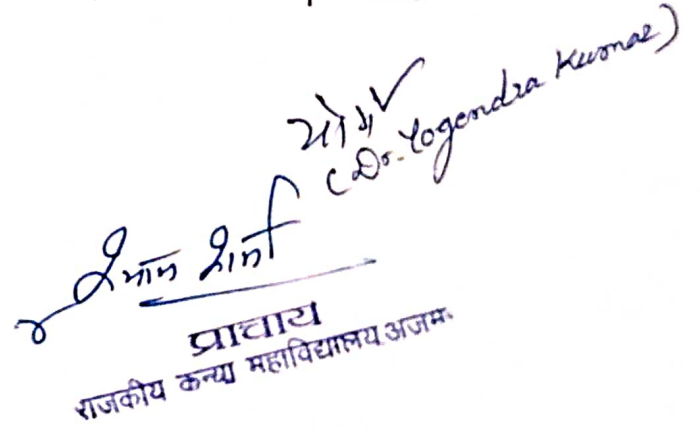 (Dr. Yogendra Kumar)
शर्मा
प्राचाय
राजकीय कन्या महाविद्यालय अजम